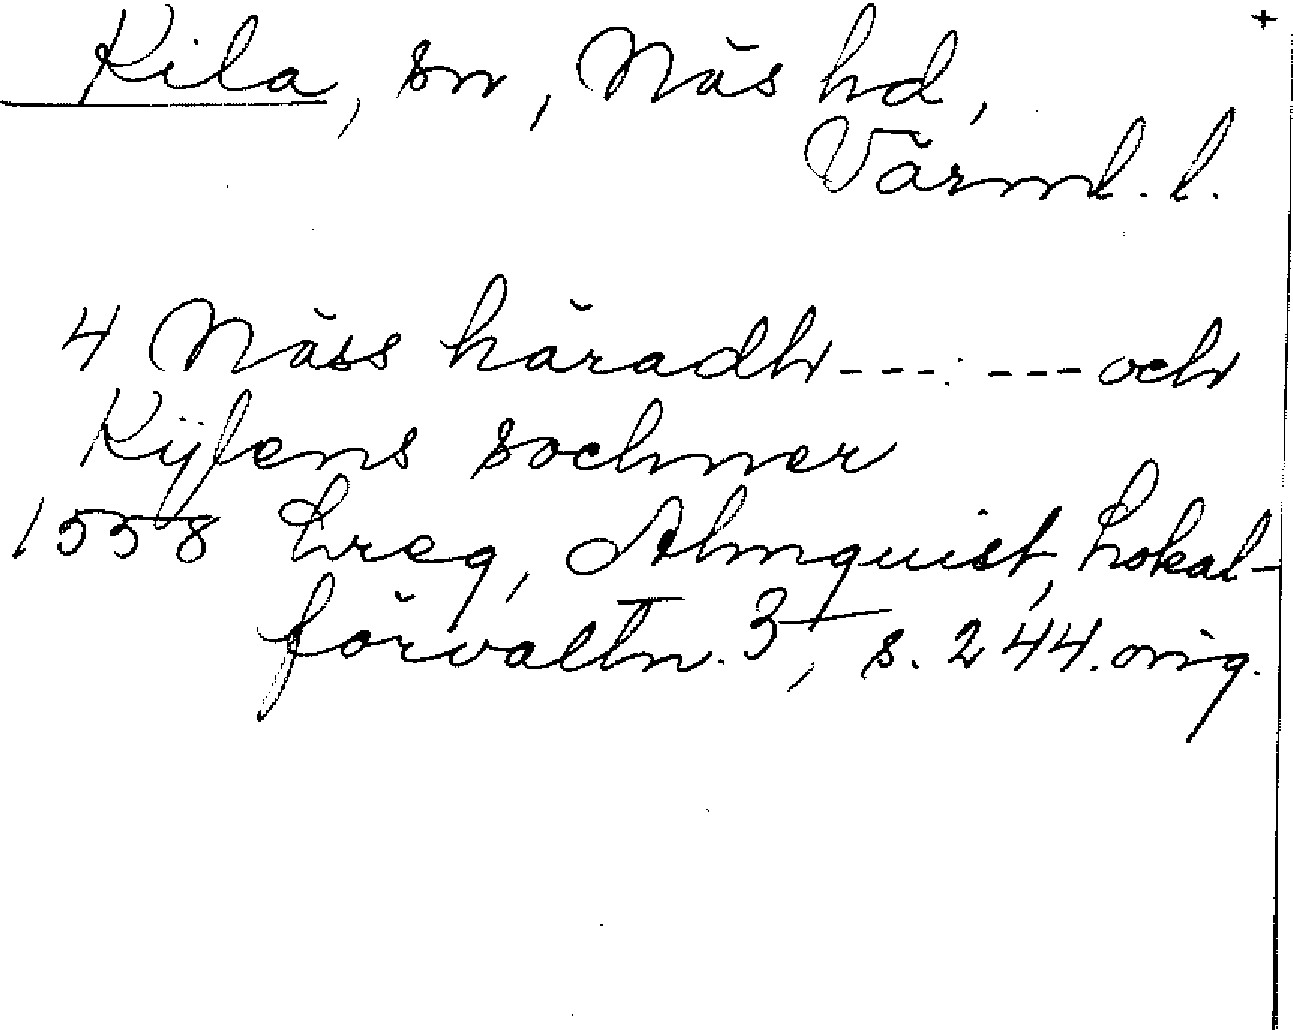 +
Kila, sn, Näs hd,
Värml. l.
4 Näss häradh --- --- och
Kÿlens sochner
1558 Lreg, Almquist, Lokal-
förvaltn. 3, s. 244. orig.